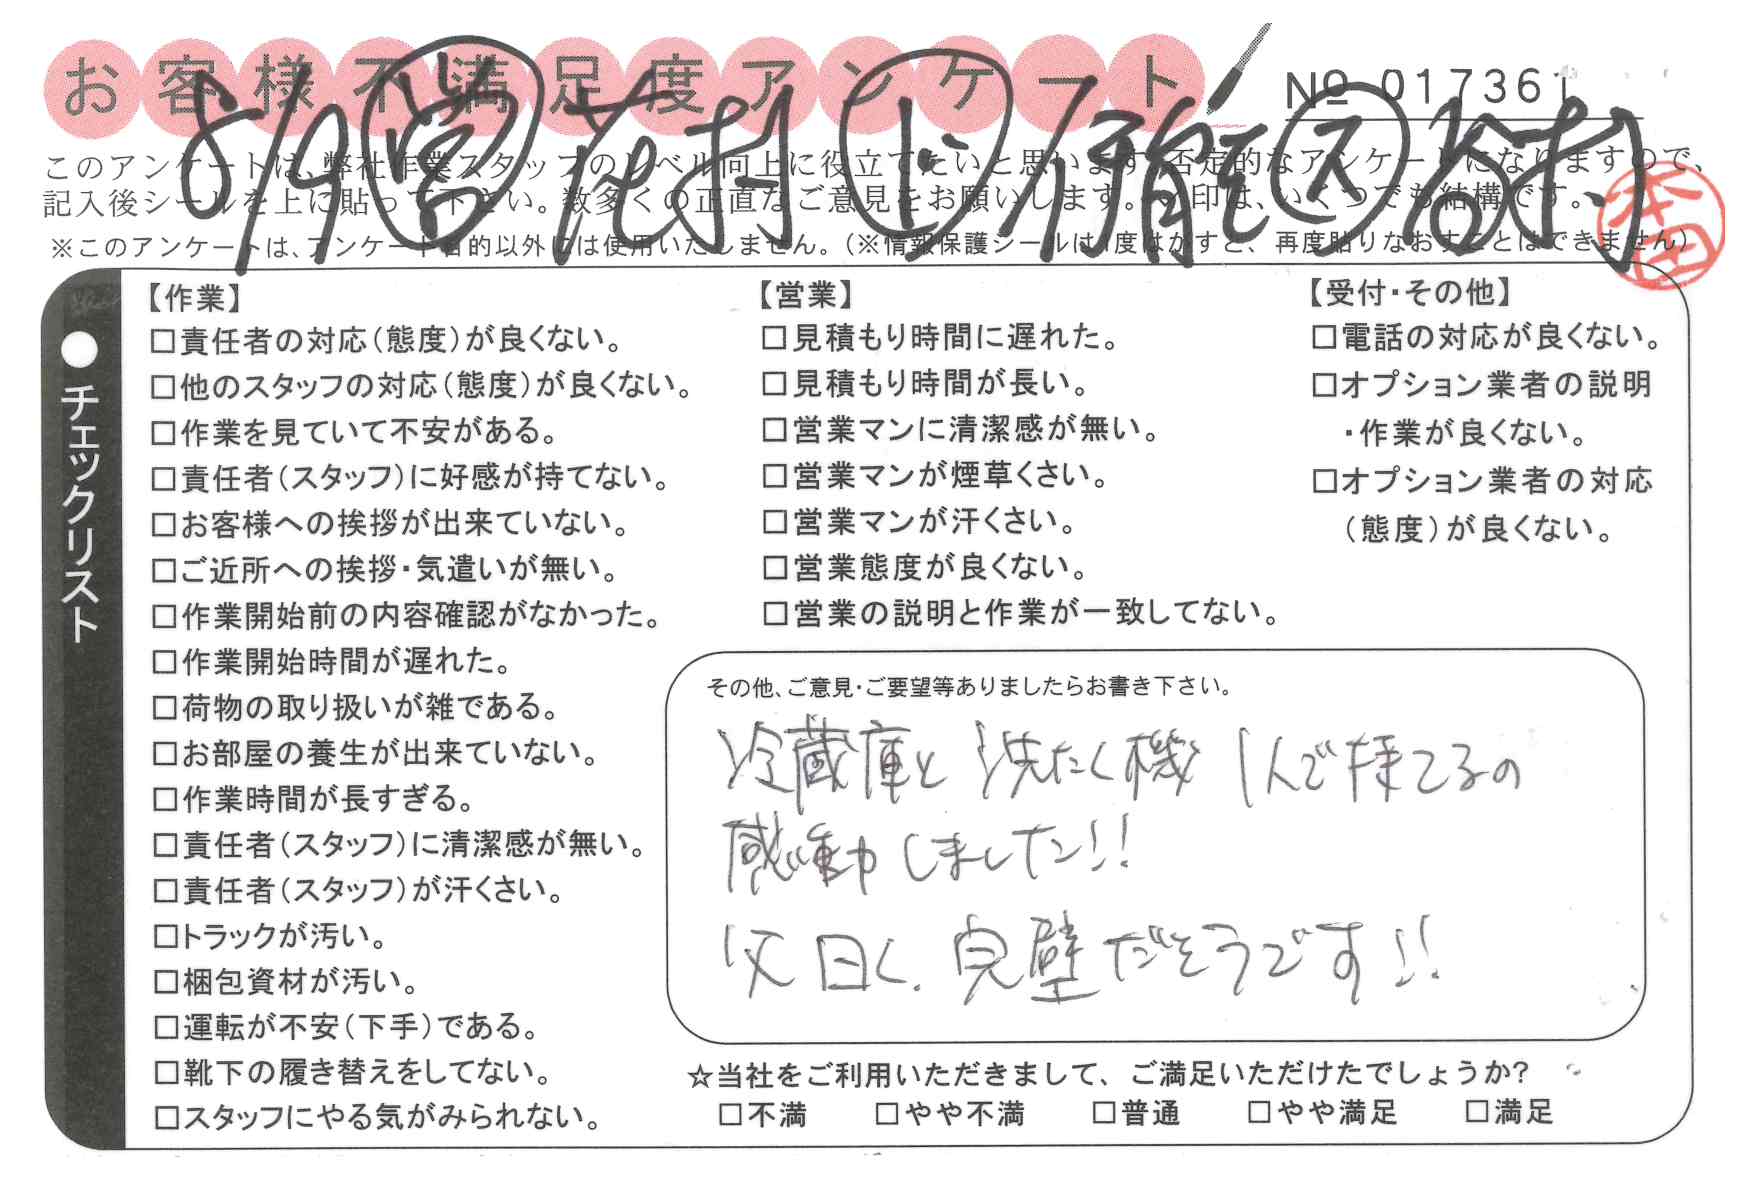 お客様不満足度アンケート
№ 017361
8/9 営 花村 上 須 ス 谷村
このアンケートは、弊社作業スタッフのレベル向上に役立てたいと思います。否定的なアンケートになりますので、
記入後シールを上に貼って下さい。数多くの正直なご意見をお願いします。レ印は、いくつでも結構です。
本田
※このアンケートは、アンケート目的以外には使用いたしません。(※情報保護シールは1度はがすと、再度貼りなおすことはできません)
●チェックリスト
【作業】
□責任者の対応(態度)が良くない。
□他のスタッフの対応(態度)が良くない。
□作業を見ていて不安がある。
□責任者(スタッフ)に好感が持てない。
□お客様への挨拶が出来ていない。
□ご近所への挨拶・気遣いが無い。
□作業開始前の内容確認がなかった。
□作業開始時間が遅れた。
□荷物の取り扱いが雑である。
□お部屋の養生が出来ていない。
□作業時間が長すぎる。
□責任者(スタッフ)に清潔感が無い。
□責任者(スタッフ)が汗くさい。
□トラックが汚い。
□梱包資材が汚い。
□運転が不安(下手)である。
□靴下の履き替えをしてない。
□スタッフにやる気がみられない。
【営業】
□見積もり時間に遅れた。
□見積もり時間が長い。
□営業マンに清潔感が無い。
□営業マンが煙草くさい。
□営業マンが汗くさい。
□営業態度が良くない。
□営業の説明と作業が一致してない。
【受付・その他】
□電話の対応が良くない。
□オプション業者の説明
・作業が良くない。
□オプション業者の対応
(態度)が良くない。
その他、ご意見・ご要望等ありましたらお書き下さい。
冷蔵庫と洗たく機 1人で持てるの
感動しました!!
父曰く、完璧だそうです!!
☆当社をご利用いただきまして、ご満足いただけたでしょうか?
□不満 □やや不満 □普通 □やや満足 □満足